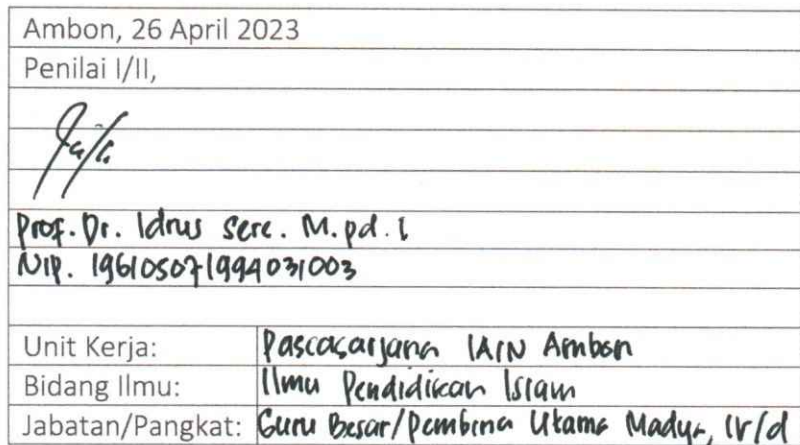 Ambon, 26 April 2023
Penilai I/II,
Prof. Dr. Idrus Sere. M.pd.I
NIP. 196105071994031003
Unit Kerja: Pascasarjana IAIN Ambon
Bidang Ilmu: Ilmu Pendidikan Islam
Jabatan/Pangkat: Guru Besar/Pembina Utama Madya, IV/d